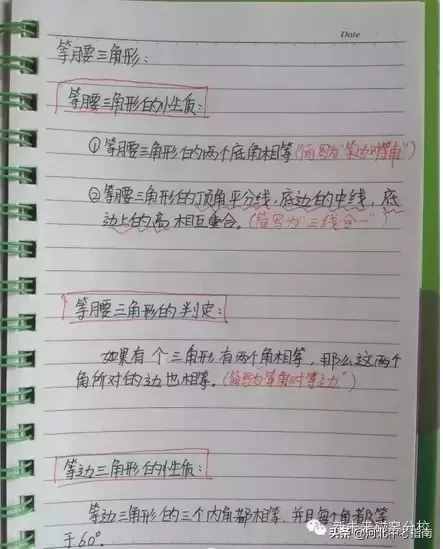 Date
等腰三角形:
等腰三角形的性质:
①等腰三角形的两个底角相等(简写为"等边对等角")
②等腰三角形的顶角平分线,底边的中线,底
边上的高相互重合。(简写为"三线合一")
等腰三角形的判定:
如果有个三角形有两个角相等,那么这两个
角所对的边也相等。(简写为"等角对等边")
等边三角形的性质:
等边三角形的三个内角都相等,并且每个角都等
于60°。
头条@河北中考指南